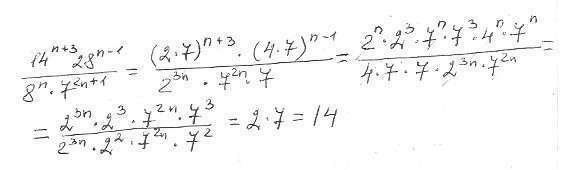 14^{n+3} 28^{n-1} / 8^n · 7^{2n+1} = (2·7)^{n+3} · (4·7)^{n-1} / 2^{3n} · 7^{2n} · 7 = 2^n · 2^3 · 7^n · 7^3 · 4^n · 7^n / 4 · 7 · 7 · 2^{3n} · 7^{2n} =
= 2^{3n} · 2^3 · 7^{2n} · 7^3 / 2^{3n} · 2^2 · 7^{2n} · 7^2 = 2 · 7 = 14